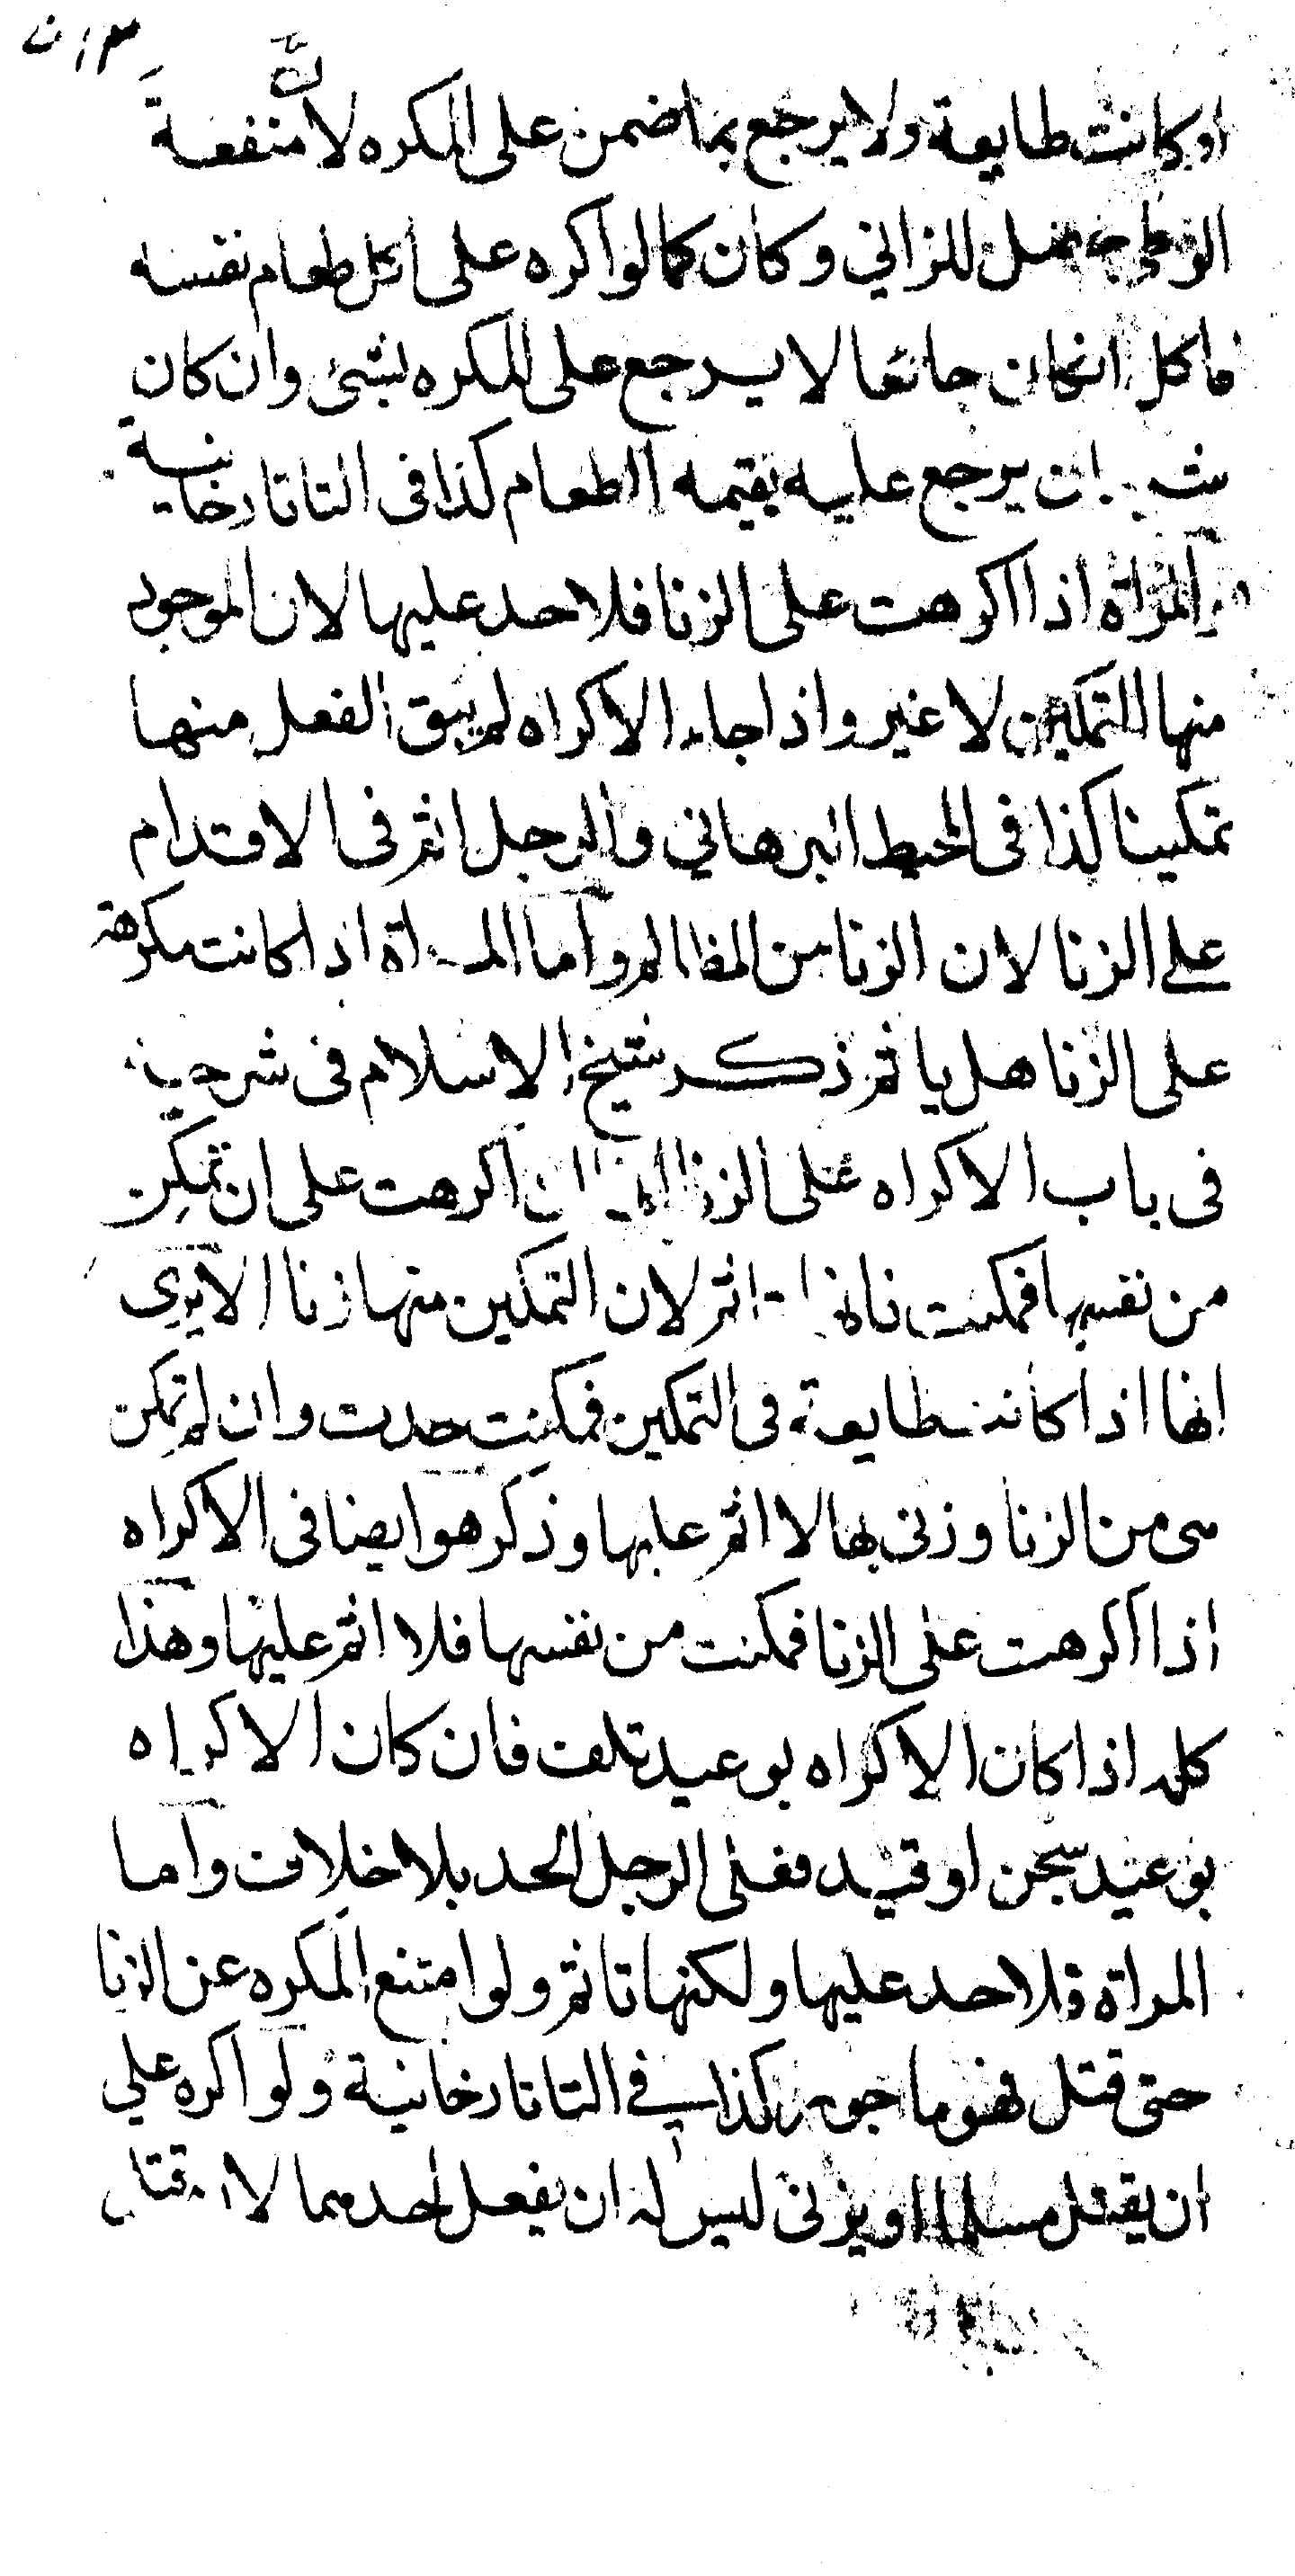 اوكانت طايعة ولا يرجع بما ضمن على المكره لان منفعة
الوطى تحصل للزاني وكان كما لو اكره على اكل طعام نفسه
فاكل ان كان جائعا لا يرجع على المكره بشئ وان كان
يرجع عليه بقيمه الطعام كذا فى التاتارخانية
المراة اذا اكرهت على الزنا فلا حد عليها لان الموجود
منها التمكين لا غير واذا جاء الاكراه لم يبق الفعل منها
تمكينا كذا فى المحيط البرهاني والرجل اثم فى الاقدام
على الزنا لان الزنا من المظالم واما المراة اذا كانت مكرهة
على الزنا هل ياثم ذكر شيخ الاسلام فى شرحه
فى باب الاكراه على الزنا ان اكرهت على ان تمكن
من نفسها فمكنت اثم لان التمكين منها زنا الا يرى
انها اذا كانت طايعة فى التمكين فمكنت حدت وان لم تمكن
هى من الزنا وزنى بها لا اثم عليها وذكر هو ايضا فى الاكراه
اذا اكرهت على الزنا فمكنت من نفسها فلا اثم عليها وهذا
كله اذا كان الاكراه بوعيد تلف فان كان الاكراه
بوعيد سجن او قيد فعلى الرجل الحد بلا خلاف واما
المراة فلا حد عليها ولكنها تاثم ولو امتنع المكره عن الزنا
حتى قتل فهو ماجور كذا في التاتارخانية ولو اكره على
ان يقتل مسلما او يزنى ليس له ان يفعل احدهما لا